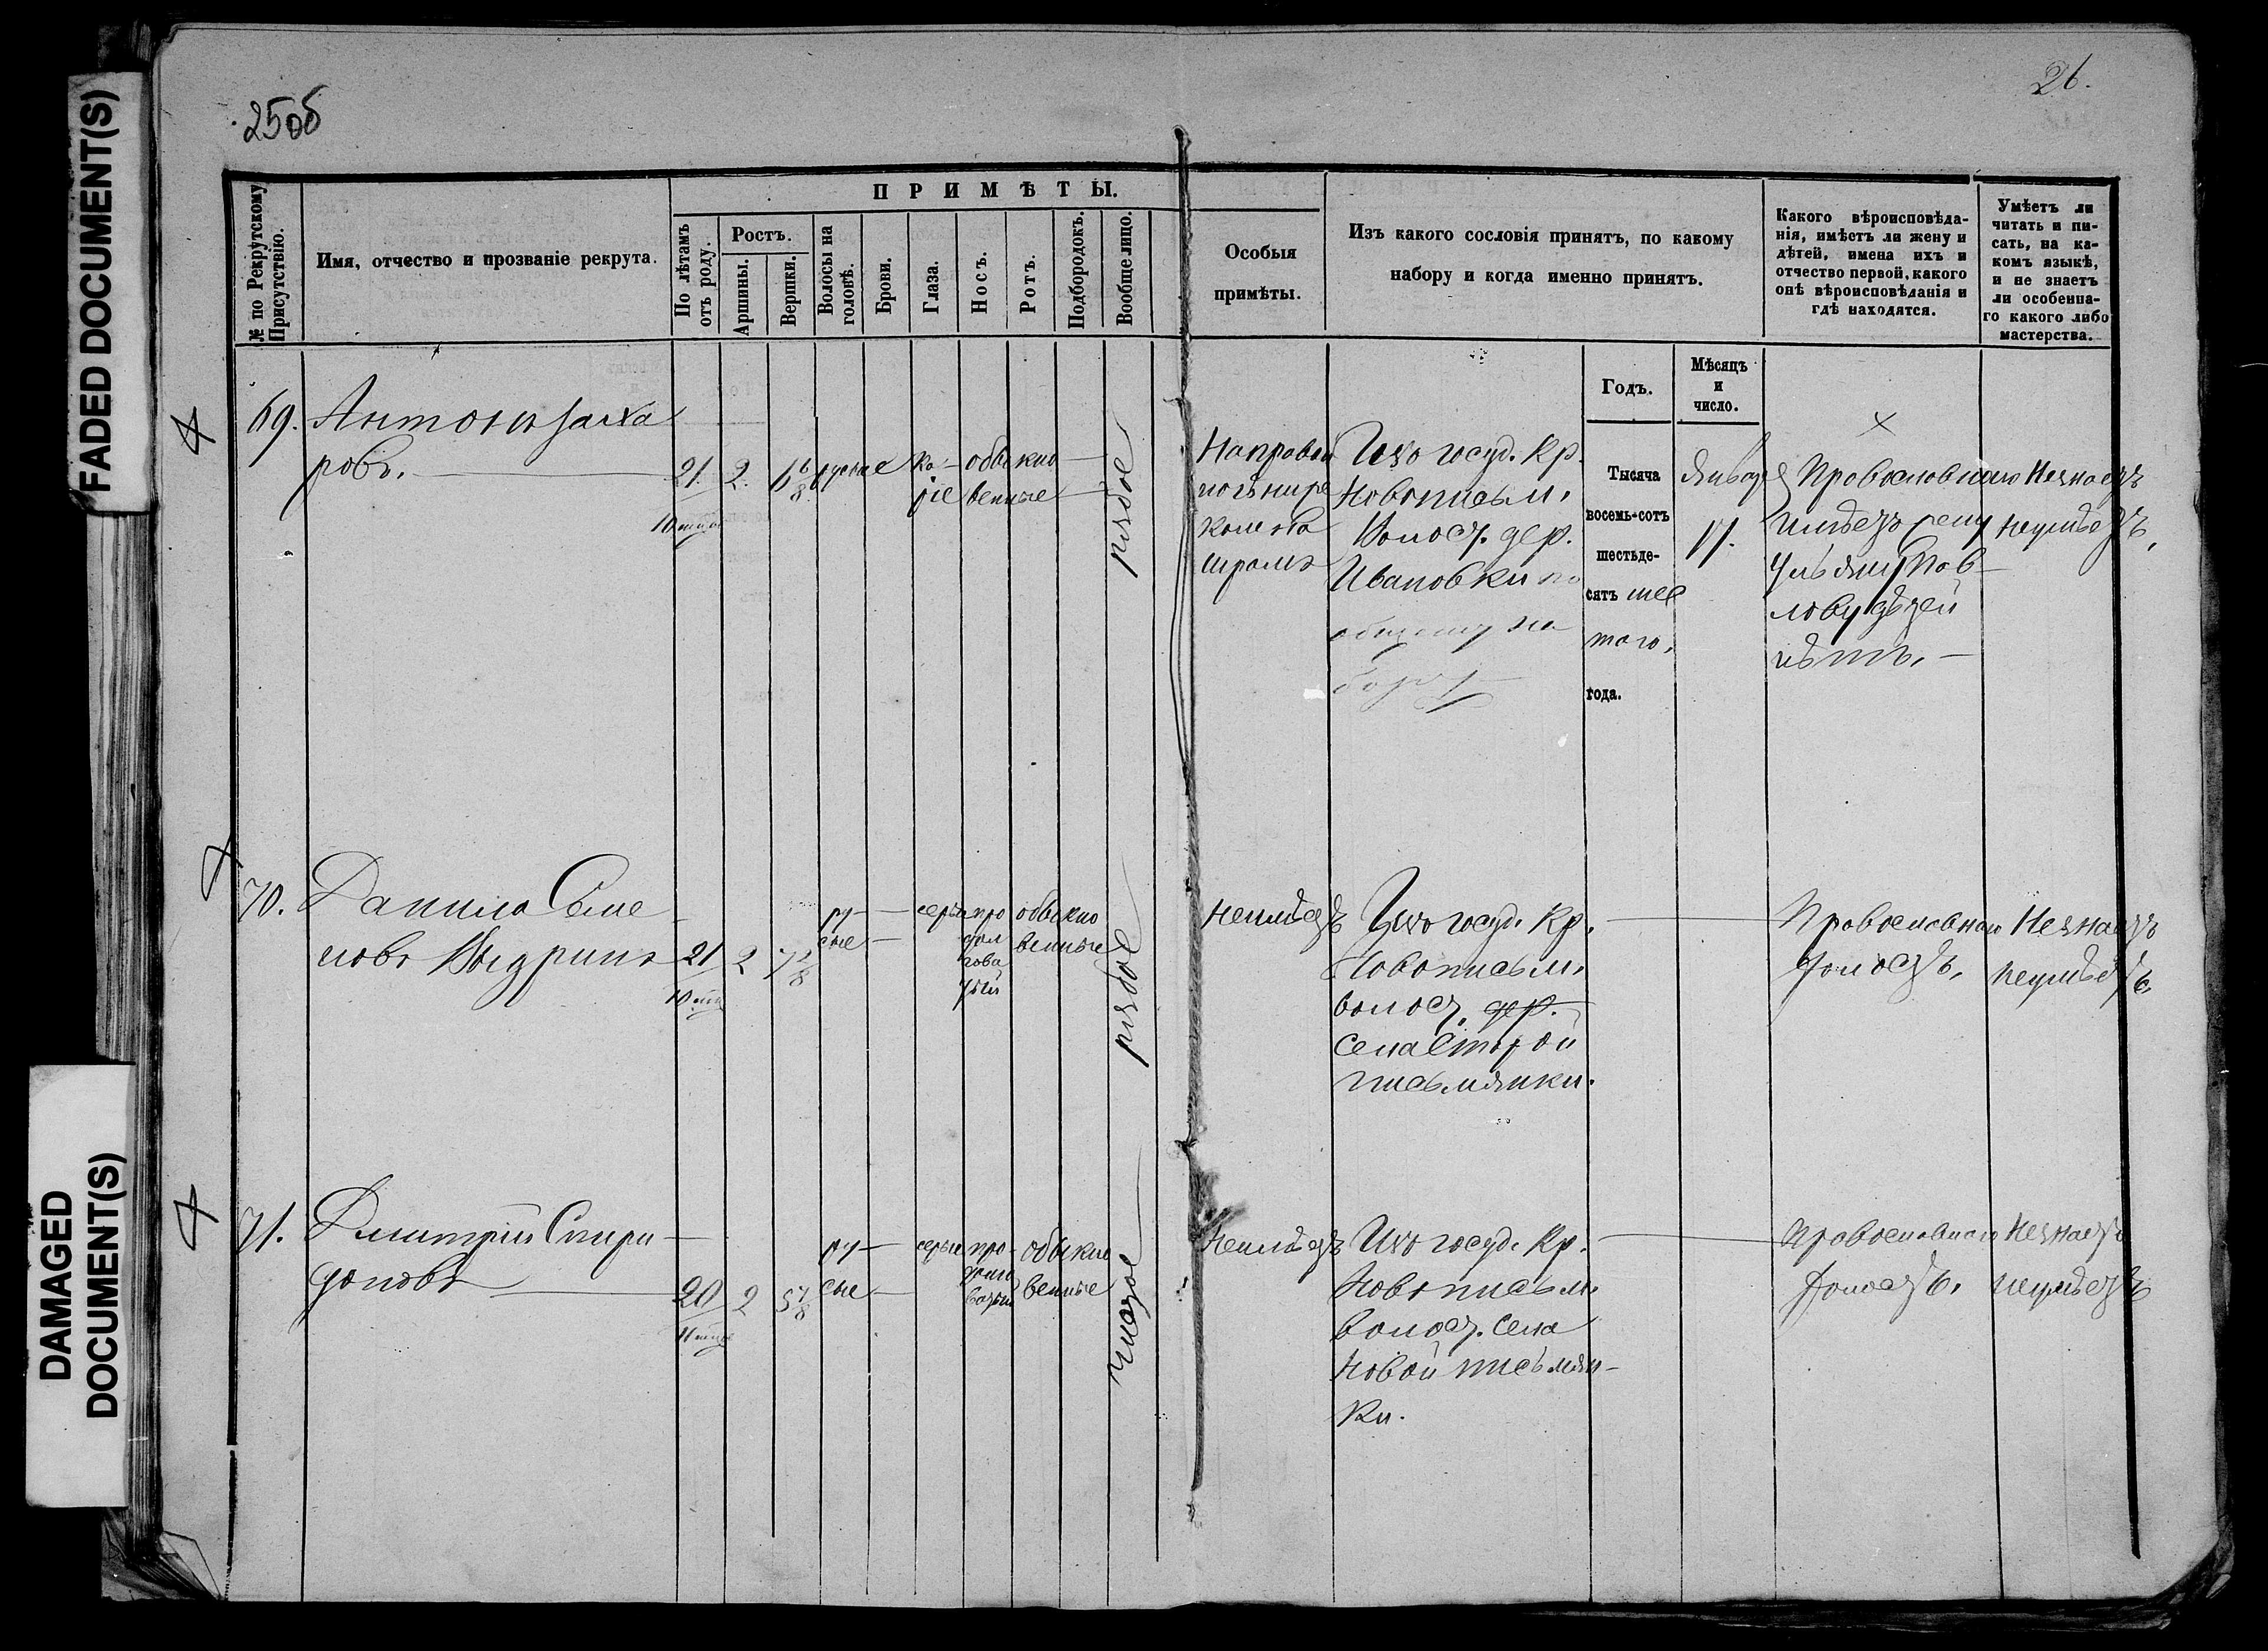 FADED DOCUMENT(S)
DAMAGED
DOCUMENT(S)
25об
26.
№ по Рекрутскому
Присутствію.
Имя, отчество и прозваніе рекрута.
ПРИМѢТЫ.
По лѣтамъ
отъ роду.
Ростъ.
Аршины.
Вершки.
Волосы на
головѣ.
Брови.
Глаза.
Носъ.
Ротъ.
Подбородокъ.
Вообще лицо.
Особыя
примѣты.
Изъ какого сословія принятъ, по какому
набору и когда именно принятъ.
Какого вѣроисповѣда-
нія, имѣетъ ли жену и
дѣтей, имена ихъ и
отчество первой, какого
онѣ вѣроисповѣданія и
гдѣ находятся.
Умѣетъ ли
читать и пи-
сать, на ка-
комъ языкѣ,
и не знаетъ
ли особенна-
го какого либо
мастерства.
Годъ.
Мѣсяцъ
и
число.
69.
Антонъ Заха
ровъ.
21.
2.
6 6/8
русые
ка-
ріе
обыкно
венные
рябое
На правой
ногѣ ниже
колена
шрамъ
Изъ госуд. Кр.
Новописьм.
Волост. дер.
Ивановки по
общему на
бору
Тысяча
восемь-сотъ
шестьде-
сятъ шес
таго,
года.
Января
17.
Православнаго
имѣетъ жену
Ульяну Пав-
лову дѣтей
нѣтъ.
Незнаетъ
неумѣетъ,
70.
Данила Семе
новъ Выдринъ
21
2
7 2/8
ру-
сые
серые
про
дол
гова
тый
обыкно
венные
рябое
Неимѣетъ
Изъ госуд. Кр.
Новописьм.
волост. дер.
села Старой
письмянки.
Православнаго
холостъ.
Незнаетъ
неумѣетъ.
71.
Дмитрій Спири
доновъ
20
2
5 7/8
ру-
сые
серые
про-
долго
ватый
обыкно
венные
чистое
Неимѣетъ
Изъ госуд. Кр.
Новописьм.
волост. села
Новой письмян-
ки.
Православнаго
холостъ.
Незнаетъ
неумѣетъ